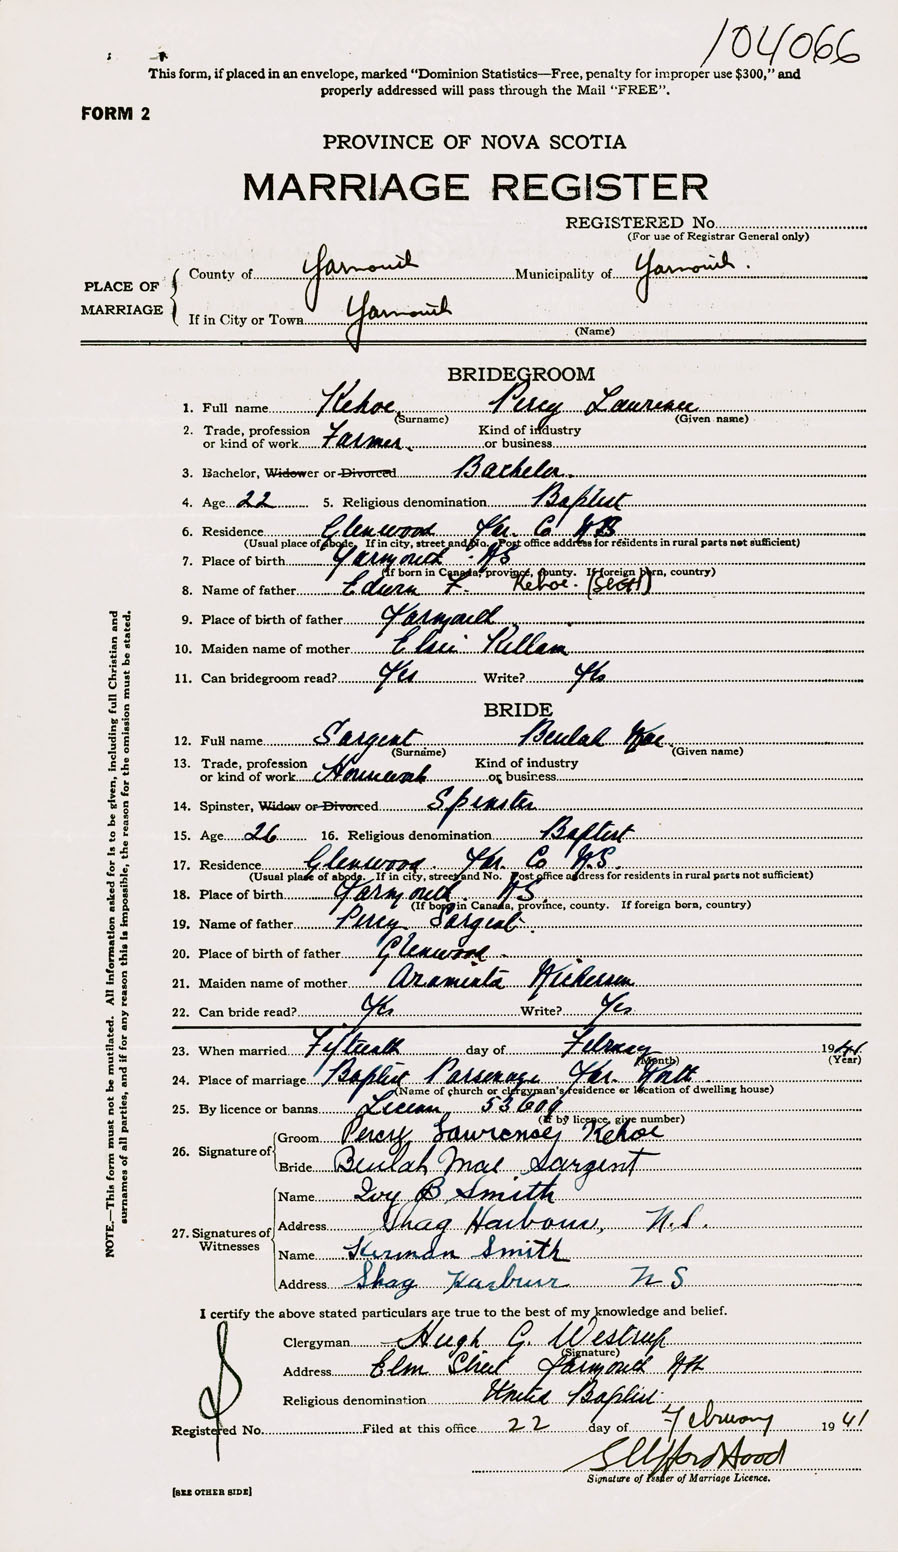 104066
This form, if placed in an envelope, marked “Dominion Statistics—Free, penalty for improper use $300,” and
properly addressed will pass through the Mail “FREE”.
FORM 2
PROVINCE OF NOVA SCOTIA
MARRIAGE REGISTER
REGISTERED No.
(For use of Registrar General only)
PLACE OF MARRIAGE
County of Yarmouth Municipality of Yarmouth.
If in City or Town Yarmouth
(Name)
BRIDEGROOM
1. Full name Kehoe, Percy
(Surname) (Given name)
2. Trade, profession or kind of work Farmer. Kind of industry or business
3. Bachelor, Widower or Divorced Bachelor.
4. Age 22 5. Religious denomination Baptist
6. Residence Glenwood Yar. Co
(Usual place of abode. If in city, street and No. Post office address for residents in rural parts not sufficient)
7. Place of birth Yarmouth NS
(If born in Canada, province, county. If foreign born, country)
8. Name of father Edwin F. Kehoe
9. Place of birth of father Yarmouth
10. Maiden name of mother Elsie Killam
11. Can bridegroom read? Yes Write? Yes
BRIDE
12. Full name Sargent Beulah Mae
(Surname) (Given name)
13. Trade, profession or kind of work Housework Kind of industry or business
14. Spinster, Widow or Divorced Spinster
15. Age 26 16. Religious denomination Baptist
17. Residence Glenwood. Yar. Co N.S.
(Usual place of abode. If in city, street and No. Post office address for residents in rural parts not sufficient)
18. Place of birth Yarmouth. NS.
(If born in Canada, province, county. If foreign born, country)
19. Name of father Percy Sargent.
20. Place of birth of father Glenwood.
21. Maiden name of mother Araminta Nickerson
22. Can bride read? Yes Write? Yes
23. When married Fifteenth day of February 19
(Month) (Year)
24. Place of marriage Baptist Parsonage Yar. North.
(Name of church or clergyman's residence or location of dwelling house)
25. By licence or banns License 53609
(If by licence, give number)
26. Signature of
Groom Percy Lawrence Kehoe
Bride Beulah Mae Sargent
27. Signatures of Witnesses
Name Ivy B. Smith
Address Shag Harbour, N.S.
Name Kirman Smith
Address Shag Harbour N S
I certify the above stated particulars are true to the best of my knowledge and belief.
Clergyman Hugh G. Westrup
(Signature)
Address Elm Street Yarmouth
Religious denomination United Baptist
Registered No. Filed at this office 22 day of February 19 41
Signature of Issuer of Marriage Licence.
[SEE OTHER SIDE]
NOTE.—This form must not be mutilated. All information asked for is to be given, including full Christian and
surnames of all parties, and if for any reason this is impossible, the reason for the omission must be stated.